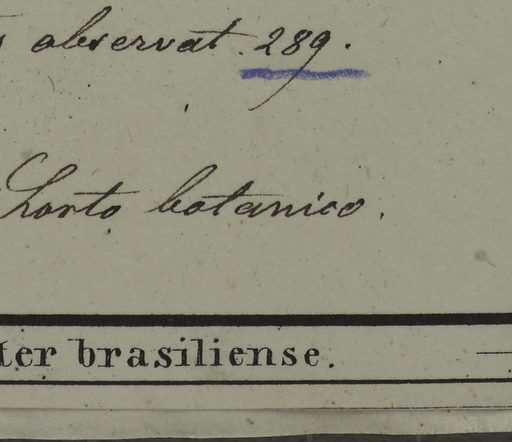 s observat. 289.
Horto botanico.
ter brasiliense.